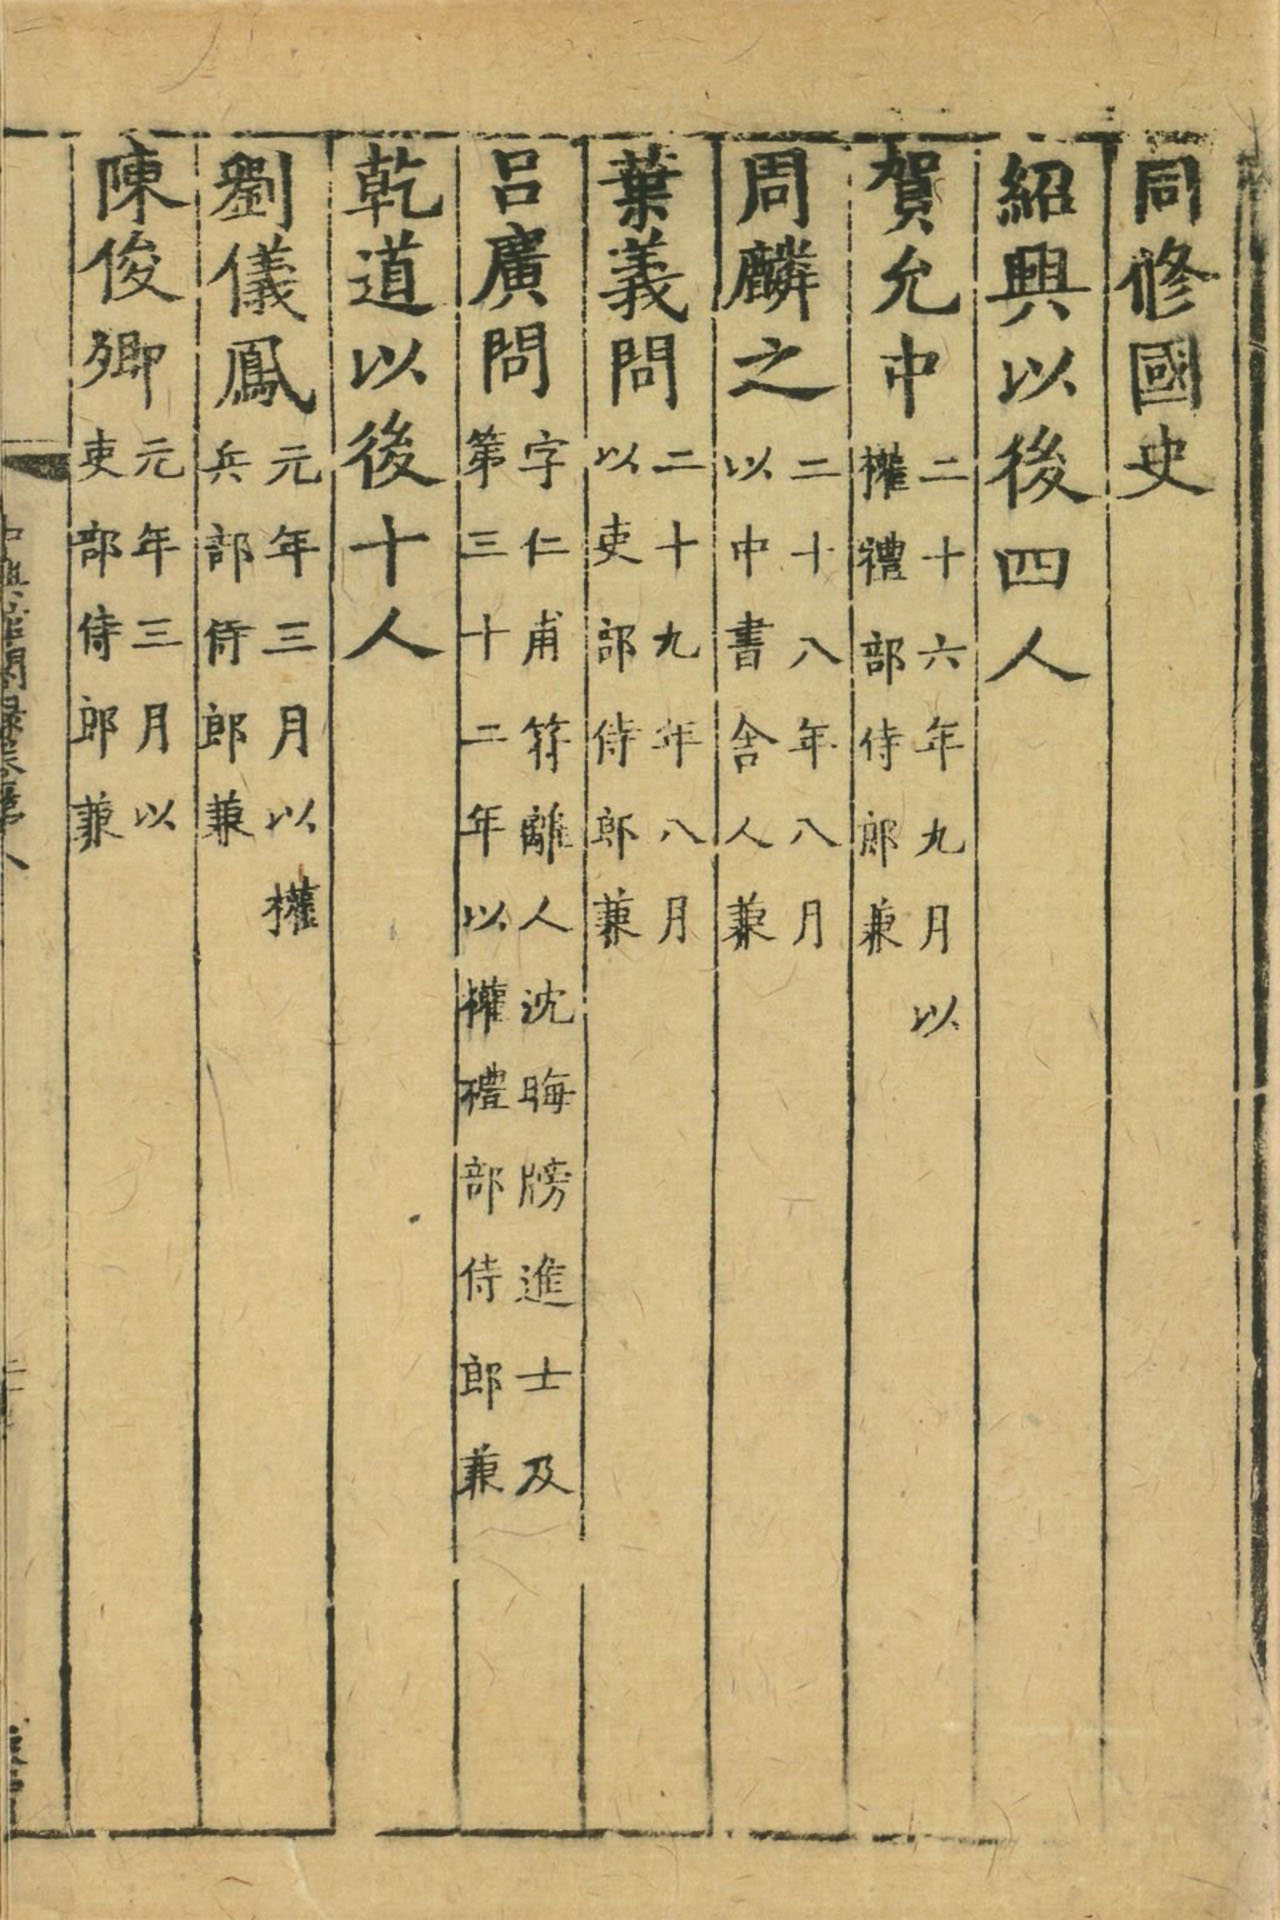 同修國史
紹興以後四人
賀允中二十六年九月以
權禮部侍郎兼
周麟之二十八年八月
以中書舍人兼
葉義問二十九年八月
以吏部侍郎兼
呂廣問字仁甫符離人沈晦牓進士及
第三十二年以權禮部侍郎兼
乾道以後十人
劉儀鳳元年三月以權
兵部侍郎兼
陳俊卿元年三月以
吏部侍郎兼